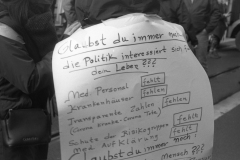 Glaubst du immer noch
die Politik interessiert sich für
dein Leben ???
Med Personal fehlt
Krankenhäuser fehlen
Transparente Zahlen fehlen
(Corona Kranke - Corona Tote)
Schutz der Risikogruppe fehlt
Aufklärung fehlt
Glaubst du immer noch
Mensch ???